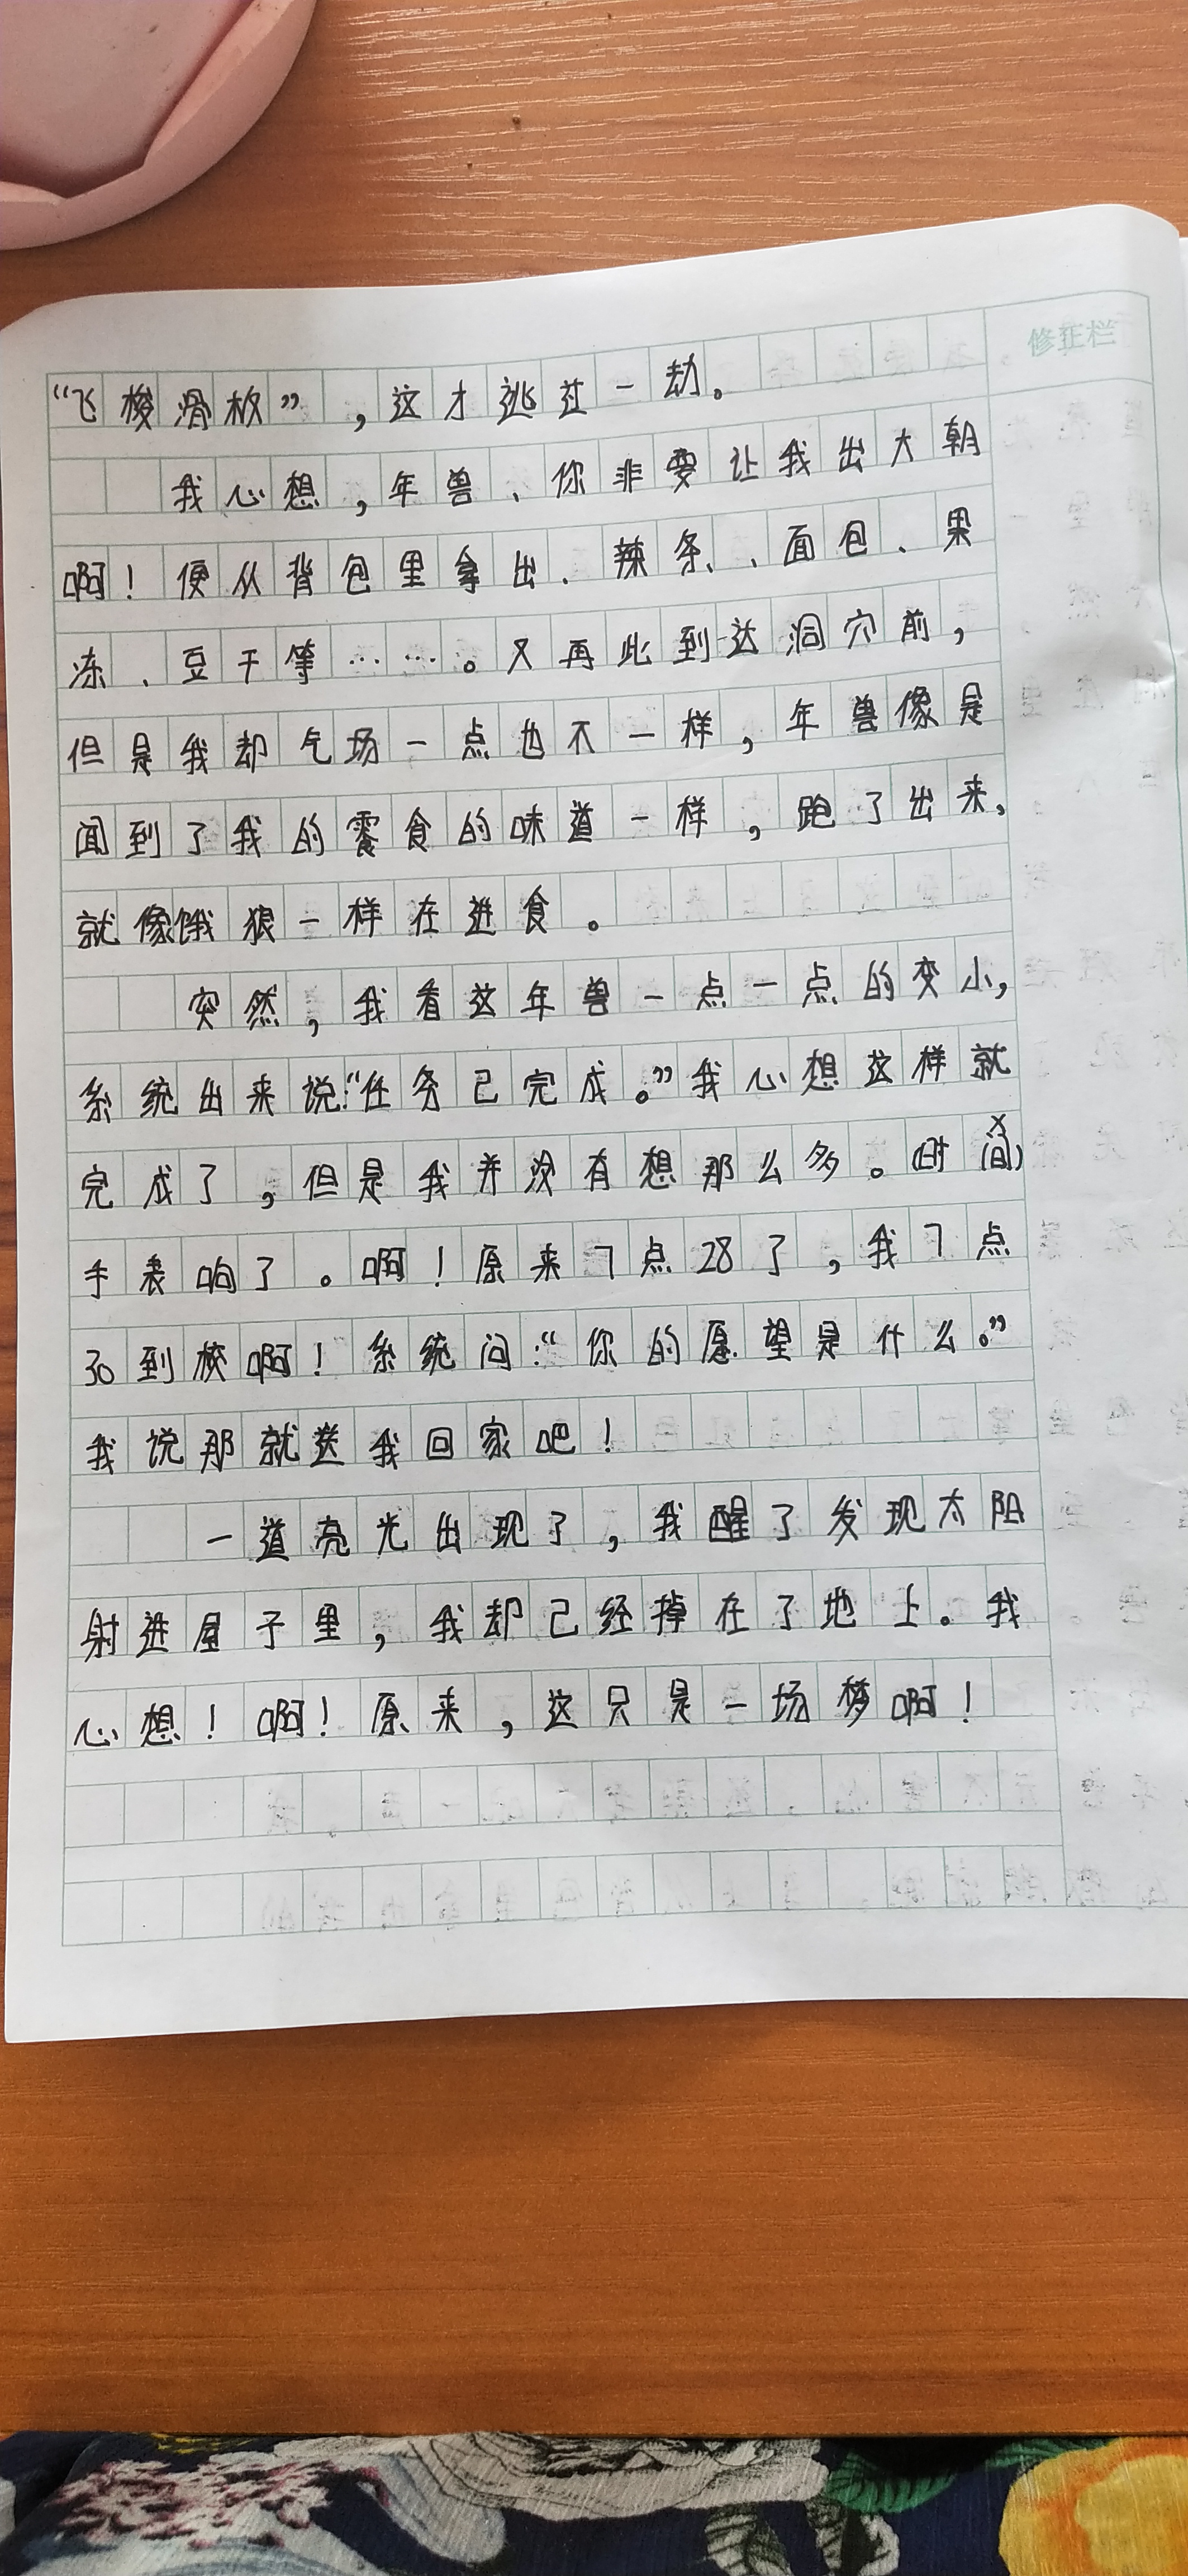 修正栏
“飞梭滑板”，这才逃过一劫。
我心想，年兽、你非要让我出大朝
啊！便从背包里拿出、辣条、面包、果
冻、豆干等……。又再此到达洞穴前，
但是我却气场一点也不一样，年兽像是
闻到了我的零食的味道一样，跑了出来，
就像饿狼一样在进食。
突然，我看这年兽一点一点的变小，
系统出来说：“任务己完成。”我心想这样就
完成了，但是我并没有想那么多。（时间）
手表响了。啊！原来7点28了，我7点
30到校啊！系统问：“你的愿望是什么。”
我说那就送我回家吧！
一道亮光出现了，我醒了发现太阳
射进屋子里，我却己经掉在了地上。我
心想！啊！原来，这只是一场梦啊！